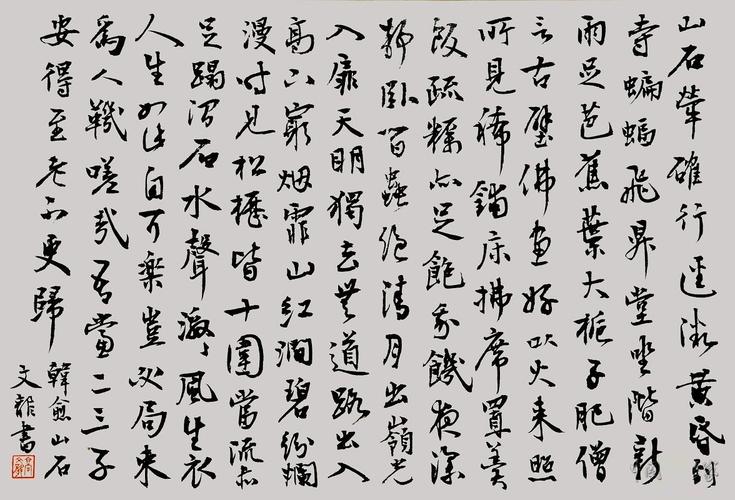 山石犖確行逕微黃昏到
寺蝙蝠飛昇堂坐階新
雨足芭蕉葉大梔子肥僧
言古壁佛畫好以火来照
所見稀鋪床拂席置羹
飯疏糲亦足飽我饑夜深
靜卧百蟲絕清月出嶺光
入扉天明獨去無道路出入
高下窮烟霏山紅澗碧紛爛
漫時見松櫪皆十圍當流赤
足蹋澗石水聲激〻風生衣
人生如此自可樂豈必局束
為人鞿嗟哉吾當二三子
安得至老不更歸
韓愈山石
文書